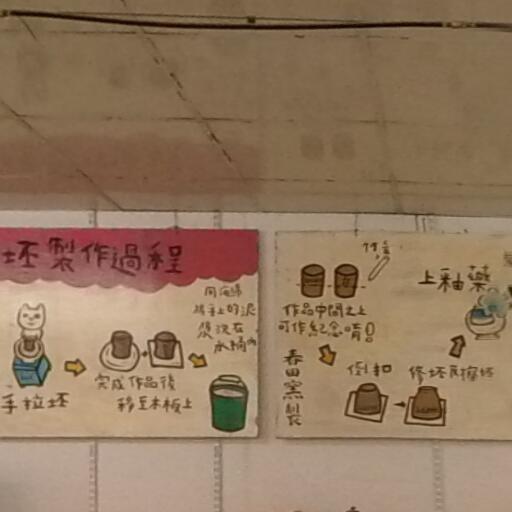 坯製作過程
手拉坯
完成作品後
移至木板上
用海綿
將手上的泥
漿洗在
水桶內
作品中間之上
可作紀念唷!!
春田窯製
倒扣
修坯及擦坯
上釉藥